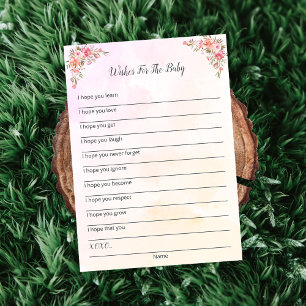 Wishes For The Baby
I hope you learn
I hope you love
I hope you get
I hope you laugh
I hope you never forget
I hope you ignore
I hope you become
I hope you respect
I hope you grow
I hope that you
XOXO,
Name